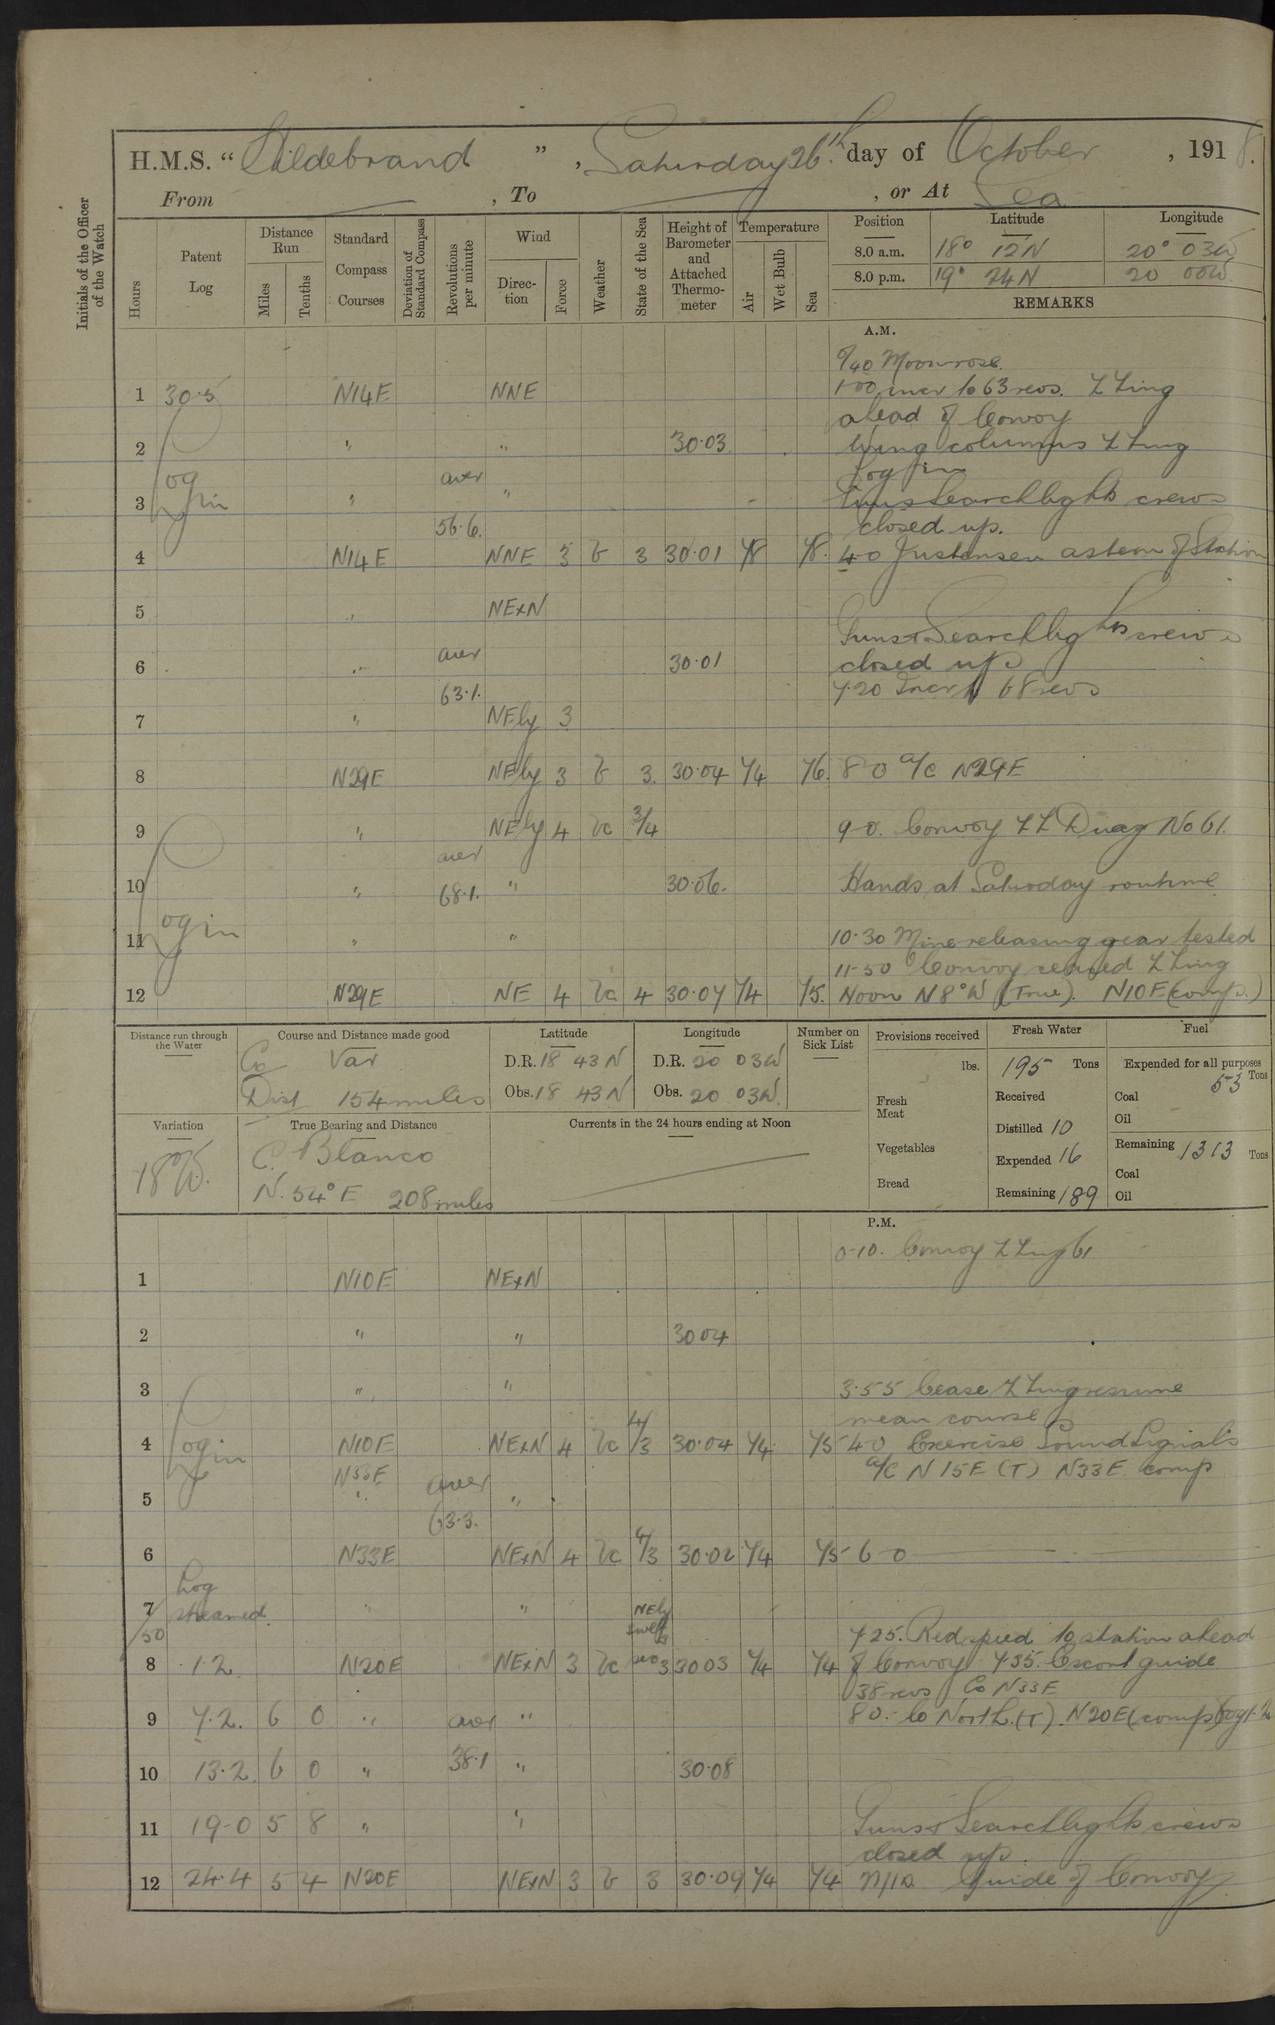 H.M.S. “ Hildebrand ” , Saturday 26th day of October , 1918.
From , To , or At Sea
Initials of the Officer of the Watch
Hours
Patent Log
Distance Run
Miles
Tenths
Standard Compass Courses
Deviation of Standard Compass
Revolutions per minute
Wind
Direction
Force
Weather
State of the Sea
Height of Barometer and Attached Thermometer
Temperature
Air
Wet Bulb
Sea
Position Latitude Longitude
8.0 a.m. 18° 12N 20° 03W
8.0 p.m. 19° 24N 20 00W
REMARKS
A.M.
0/40 Moonrose.
1 30.5 N14E NNE 1·00 incr to 63 revs. Z Zing
ahead of Convoy
2 " " 30·03 Wing columns Z Zing
Log in
Log in aver
3 " " Guns Searchlights crews
56·6. closed up.
4 N14E NNE 3 b 3 30·01 78 78. 4·0 astern of Station
5 " NExN
Guns & Searchlights crews
6 " aver 30·01 closed up
63·1. 7·20 Incr 68 revs
7 " NEly 3
8 N29E NEly 3 b 3. 30·04 74 76. 8·0 a/c N29E
9 " NEly 4 bc 3/4 9·0. Convoy Z Z Diag No 61.
aver
10 " 68·1. " 30·06. Hands at Saturday routine
Log in
11 " " 10·30 Mine releasing gear tested
11·50 Convoy ceased Z Zing
12 N29E NE 4 bc 4 30·07 74 75. Noon N8°W (True). N10E (comp.)
Distance run through the Water
Course and Distance made good
Co Var
Dist 154 miles
Latitude
D.R. 18 43 N
Obs. 18 43 N
Longitude
D.R. 20 03W
Obs. 20 03W.
Number on Sick List
Provisions received
lbs.
Fresh Meat
Vegetables
Bread
Fresh Water
195 Tons
Received
Distilled 10
Expended 16
Remaining 189
Fuel
Expended for all purposes
53 Tons
Coal
Oil
Remaining 1313 Tons
Coal
Oil
Variation
18°W.
True Bearing and Distance
C. Blanco
N. 54° E 208 miles
Currents in the 24 hours ending at Noon
P.M.
0·10. Convoy Z Zing 61
1 N10E NExN
2 " " 30 04
3 " " 3·55 Cease Z Zing resume
mean course
4 Log in N10E NExN 4 bc 4/3 30·04 74 75 4·0 Exercise Sound Signals
N33E aver a/c N 15E (T) N33E comp
5 " "
63·3.
6 N33E NExN 4 bc 4/3 30·02 74 75 6·0
Log
7 streamed " " NEly
/50 swell 7 25. Red speed to station ahead
8 1·2 N20E NExN 3 bc sea 3 30 03 74 74 of Convoy 7 35. Escort guide
38 revs Co N33E
9 7·2. 6 0 " aver " 8 0. Co North.(T). N20E (comp) Log 1·2
10 13·2 6 0 " 38·1 " 30·08
11 19·0 5 8 " " Guns & Searchlights crews
closed up.
12 24·4 5 4 N20E NExN 3 b 3 30·09 74 74 Guide of Convoy